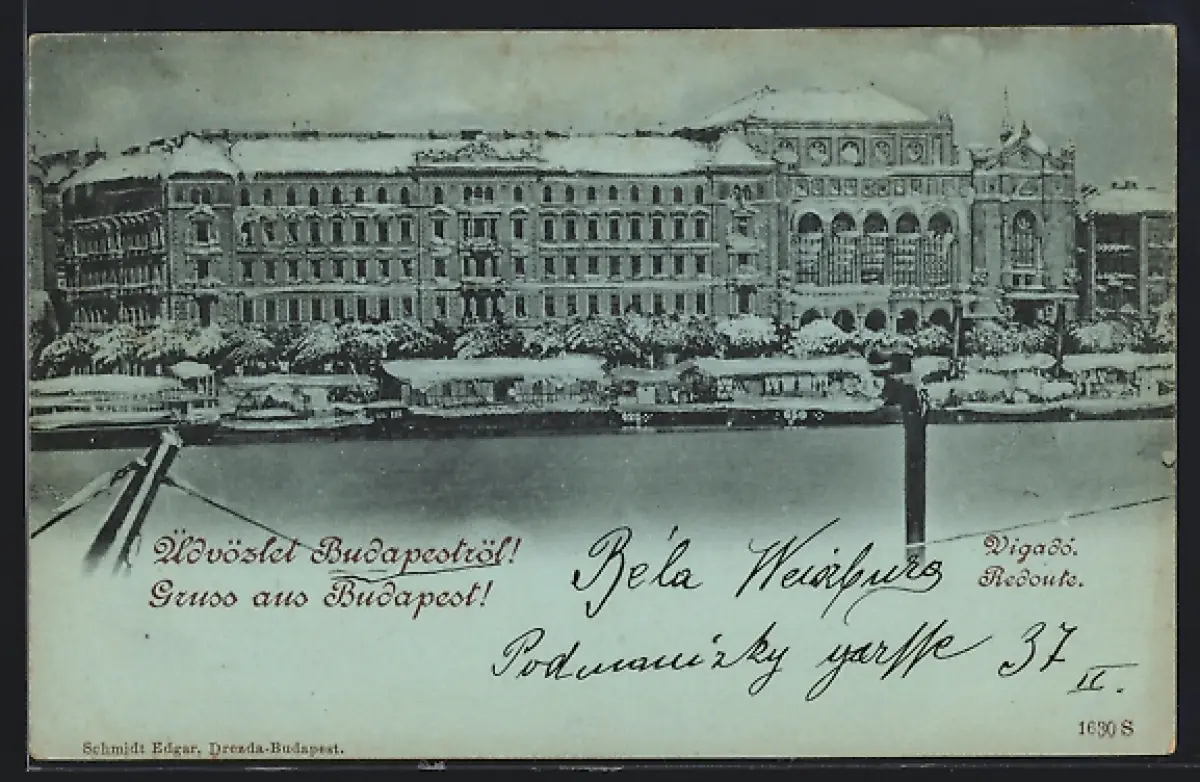 Üdvözlet Budapestről!
Gruss aus Budapest!
Vigadó.
Redoute.
Béla
Podmaniczky 37
II.
1630 S
Schmidt Edgar, Drezda-Budapest.